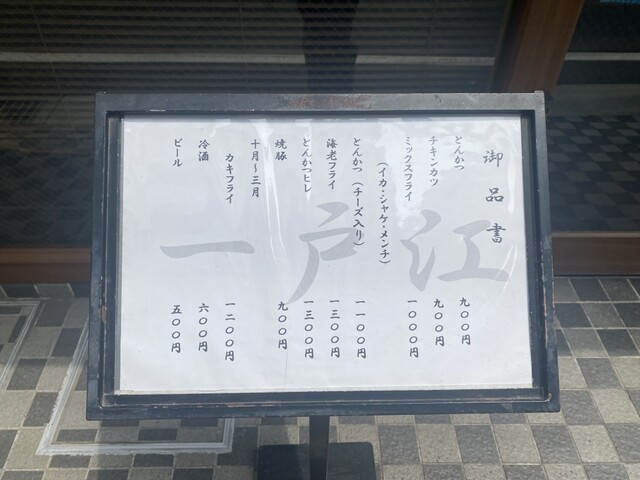 御品書
とんかつ 九〇〇円
チキンカツ 九〇〇円
ミックスフライ 一〇〇〇円
(イカ・シャケ・メンチ)
とんかつ(チーズ入り) 一一〇〇円
海老フライ 一三〇〇円
とんかつヒレ 一三〇〇円
焼豚 九〇〇円
十月~三月
カキフライ 一二〇〇円
冷酒 六〇〇円
ビール 五〇〇円
江戸一